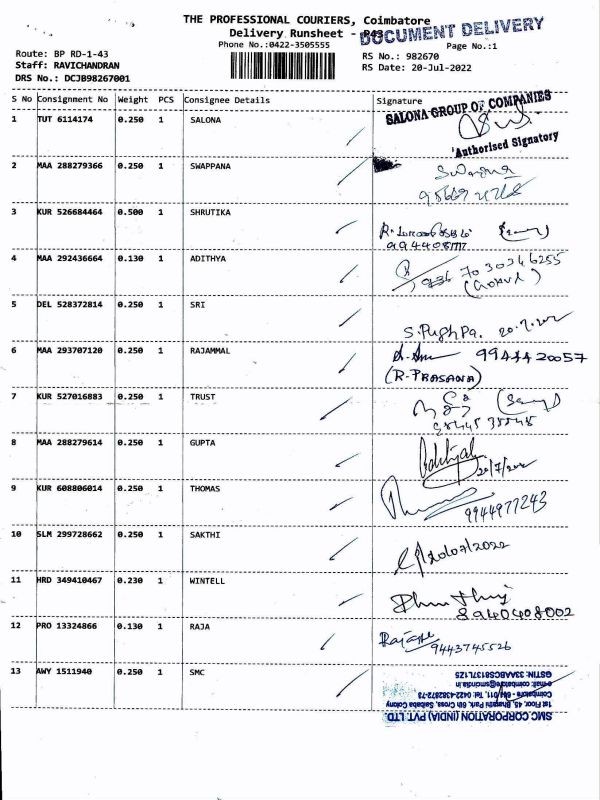 THE PROFESSIONAL COURIERS, Coimbatore
Delivery Runsheet - P43
DOCUMENT DELIVERY
Phone No.:0422-3505555
Page No.:1
Route: BP RD-1-43
RS No.: 982670
Staff: RAVICHANDRAN
RS Date: 20-Jul-2022
DRS No.: DCJB98267001
S No Consignment No Weight PCS Consignee Details Signature
1 TUT 6114174 0.250 1 SALONA
SALONA GROUP OF COMPANIES
Authorised Signatory
2 MAA 288279366 0.250 1 SWAPPANA
3 KUR 526684464 0.500 1 SHRUTIKA
4 MAA 292436664 0.130 1 ADITHYA
7030346255
5 DEL 528372814 0.250 1 SRI
S. Pushpa.
6 MAA 293707120 0.250 1 RAJAMMAL
9944420057
(R-PRASANA)
7 KUR 527016883 0.250 1 TRUST
8 MAA 288279614 0.250 1 GUPTA
9 KUR 608806014 0.250 1 THOMAS
9944977243
10 SLM 299728662 0.250 1 SAKTHI
20/07/2022
11 HRD 349410467 0.230 1 WINTELL
8940408002
12 PRO 13324866 0.130 1 RAJA
9443745526
13 AWY 1511940 0.250 1 SMC
SMC CORPORATION (INDIA) PVT. LTD.
1st Floor, 45, Bharathi Park, 6th Cross, Saibaba Colony
Coimbatore - 641 011, Tel: 0422-4382872-73
email: coimbatore@smcindia.in
GSTIN: 33AABCS8137L1Z5